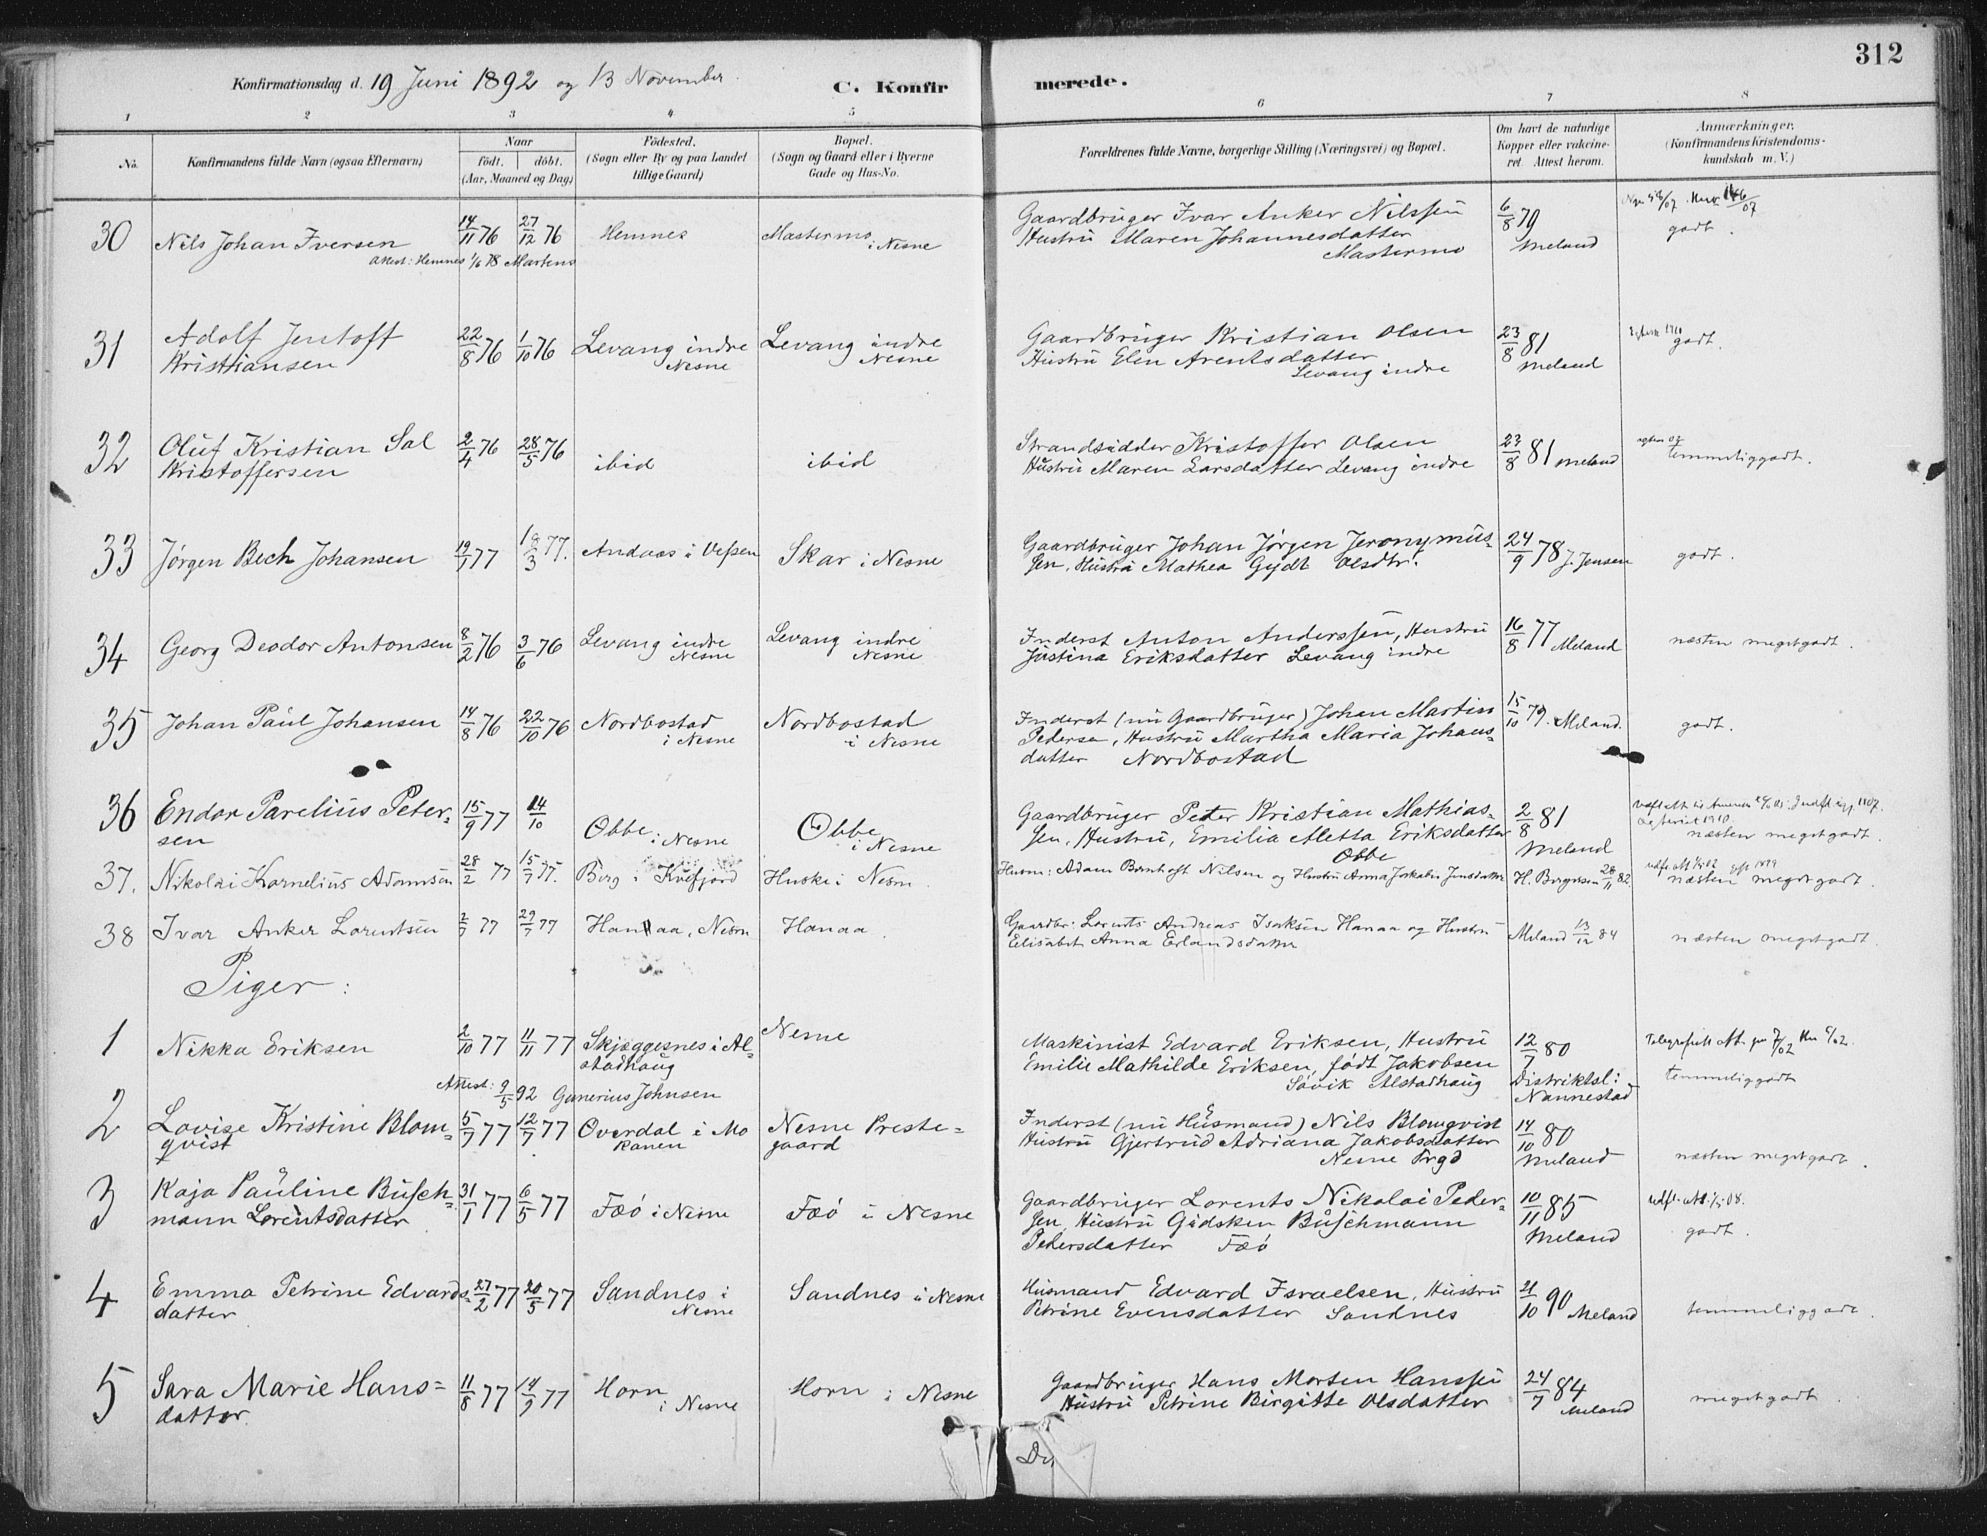 312
Konfirmationsdag d. 19 Juni 1892 og 13 November.
C. Konfirmerede.
1 2 3 4 5 6 7 8
No. Konfirmandens fulde Navn (ogsaa Efternavn) Naar født. døbt. (Aar, Maaned og Dag) Fødested. (Sogn eller By og paa Landet tillige Gaard) Bopæl. (Sogn og Gaard eller i Byerne Gade og Hus-No. Forældrenes fulde Navne, borgerlige Stilling (Næringsvei) og Bopæl. Om havt de naturlige Kopper eller vakcineret. Attest herom. Anmærkninger. (Konfirmandens Kristendomskundskab m. V.)
30 Nils Johan Iversen 14/11 76 27/12 76 Hemnes Mastermo i Nesne Gaardbruger Ivar Anker Nilssen 6/8 79
Hustru Maren Johannesdatter Meland godt.
Attest: Hemnes 1/6 78 Martens Mastermo
31 Adolf Jentoft 22/8 76 1/10 76 Levang indre Levang indre Gaardbruger Kristian Olsen 23/8 81 godt.
Kristiansen Nesne Nesne Hustru Elen Arentsdatter Meland
Levang indre
32 Oluf Kristian Sal 2/4 76 28/5 76 ibid ibid Strandsidder Kristoffer Olsen 23/8 81 Meland temmeliggodt.
Kristoffersen Hustru Maren Larsdatter Levang indre
33 Jørgen Bech Johansen 19/1 77 18/3 77. Andaas i Vefsen Skar i Nesne Gaardbruger Johan Jørgen Jeronymus- 24/9 78 J. Jensen godt.
sen, Hustru Mathea Gydt Olsdtr.
34 Georg Deodor Antonsen 8/2 76 3/6 76 Levang indre Levang indre Inderst Anton Anderssen, Hustru 16/8 77 Meland næsten megetgodt.
Nesne Nesne Justina Eriksdatter Levang indre
35 Johan Paul Johansen 14/8 76 22/10 76 Nordbostad Nordbostad Inderst (nu Gaardbruger) Johan Martin 15/10 79. Meland. godt.
i Nesne i Nesne Pedersen, Hustru Martha Maria Johans-
datter Nordbostad
36 Endor Parelius Peter- 15/9 77 14/10 Obbe Obbe Gaardbruger Peter Kristian Mathias- 2/8 81
sen i Nesne i Nesne sen, Hustru, Emilia Aletta Eriksdatter Meland næsten megetgodt.
Obbe
37. Nikolai Kornelius Adamsen 28/2 77 15/7 77. Berg i Kvæfjord Huski i Nesn. Husm: Adam Bernhoft Nilsen og Hustru Anna Jakobin Jensdatter H. Borgersen 28/11 82. næsten megetgodt.
38 Ivar Anker Lorentsen 2/7 77 29/7 77 Hanaa, Nesn Hanaa. Gaardbr: Lorents Andreas Isaksen Hanaa og Hustru Meland 13/12 84 næsten megetgodt.
Eelisabet Anna Erlandsdatter
Piger:
1 Nikka Eriksen 2/10 77 11/11 77 Skjæggesnes i Al- Nesne Maskinist Edvard Eriksen, Hustru 12/7 80
stadhaug Emilie Mathilde Eriksen, født Jakobsen Distriktsl: temmeliggodt
Attest: 9/5 92 Gunerius Johnsen Søvik Alstadhaug Nannestad
2 Lovise Kristine Blom- 5/7 77 12/7 77 Overdal i Mo Nesne Preste- Inderst (nu Husmand) Nils Blomqvist 14/10 80
qvist Ranen gaard Hustru Gjertrud Adriana Jakobsdatter Meland næsten megetgodt.
Nesne Prgd
3 Kaja Pauline Busch- 31/1 77 6/5 77 Fæø i Nesne Fæø i Nesne Gaardbruger Lorents Nikolai Peder- 10/11 85
mann Lorentsdatter sen, Hustru Gidsken Buschmann Meland godt.
Pedersdatter Fæø
4 Emma Petrine Edvards- 27/2 77 20/5 77 Sandnes i Sandnes i Nesne Husmand Edvard Israelsen, Hustru 21/10 90 Meland temmeliggodt
datter Nesne Petrine Evensdatter Sandnes
5 Sara Marie Hans- 11/8 77 14/9 77 Horn Horn i Nesne Gaardbruger Hans Morten Hanssen 24/7 84 megetgodt
datter. i Nesne Hustru Petrine Birgitte Olsdatter Meland